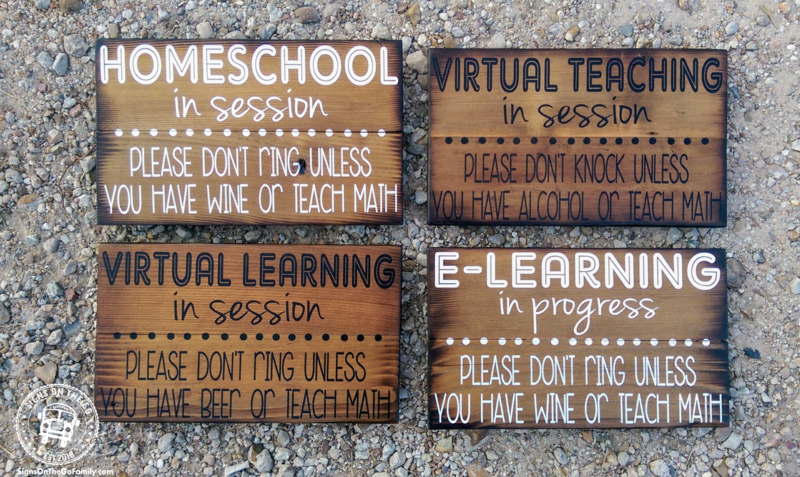 HOMESCHOOL
in session
PLEASE DON'T RING UNLESS
YOU HAVE WINE OR TEACH MATH
VIRTUAL TEACHING
in session
PLEASE DON'T KNOCK UNLESS
YOU HAVE ALCOHOL OR TEACH MATH
VIRTUAL LEARNING
in session
PLEASE DON'T RING UNLESS
YOU HAVE BEER OR TEACH MATH
E-LEARNING
in progress
PLEASE DON'T RING UNLESS
YOU HAVE WINE OR TEACH MATH
SIGNS ON THE GO
EST 2018
SignsOnTheGoFamily.com